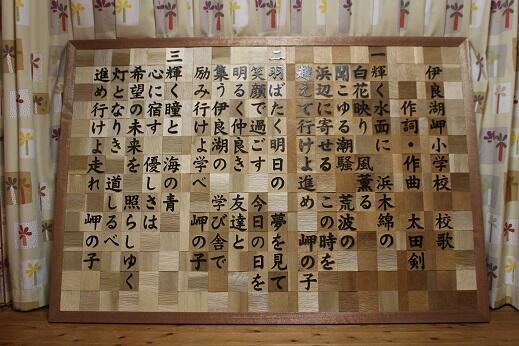 伊良湖岬小学校 校歌
作詞・作曲 太田剣
一 輝く水面に 浜木綿の
白花映り 風薫る
聞こゆる潮騒 荒波の
浜辺に寄せる この時を
越えて行けよ進め 岬の子
二 羽ばたく明日の 夢を見て
笑顔で過ごす 今日の日を
明るく仲良き 友達と
集う伊良湖の 学び舎で
励み行けよ学べ 岬の子
三 輝く瞳と 海の青
心に宿す 優しさは
希望の未来を 照らしゆく
灯となりき 道しるべ
進め行けよ走れ 岬の子